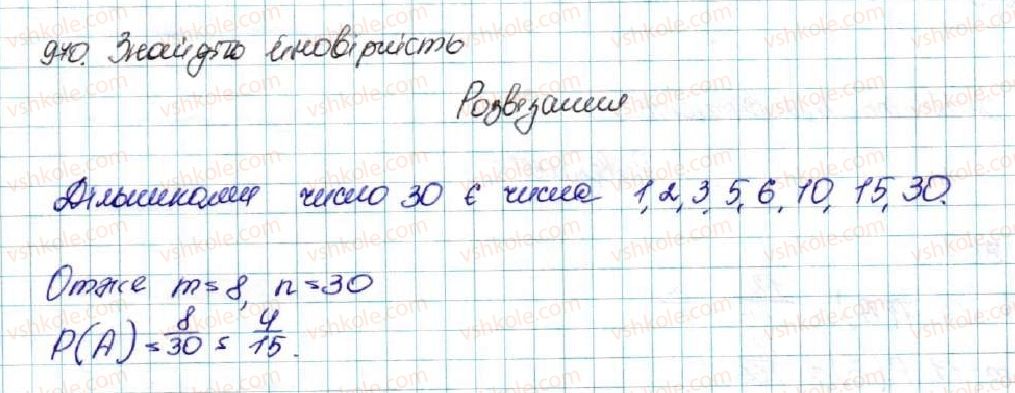 970. Знайдіть ймовірність
Розвезання
Дільниками число 30 є числа 1, 2, 3, 5, 6, 10, 15, 30.
Отже m = 8, n = 30
P(A) = 8/30 = 4/15.